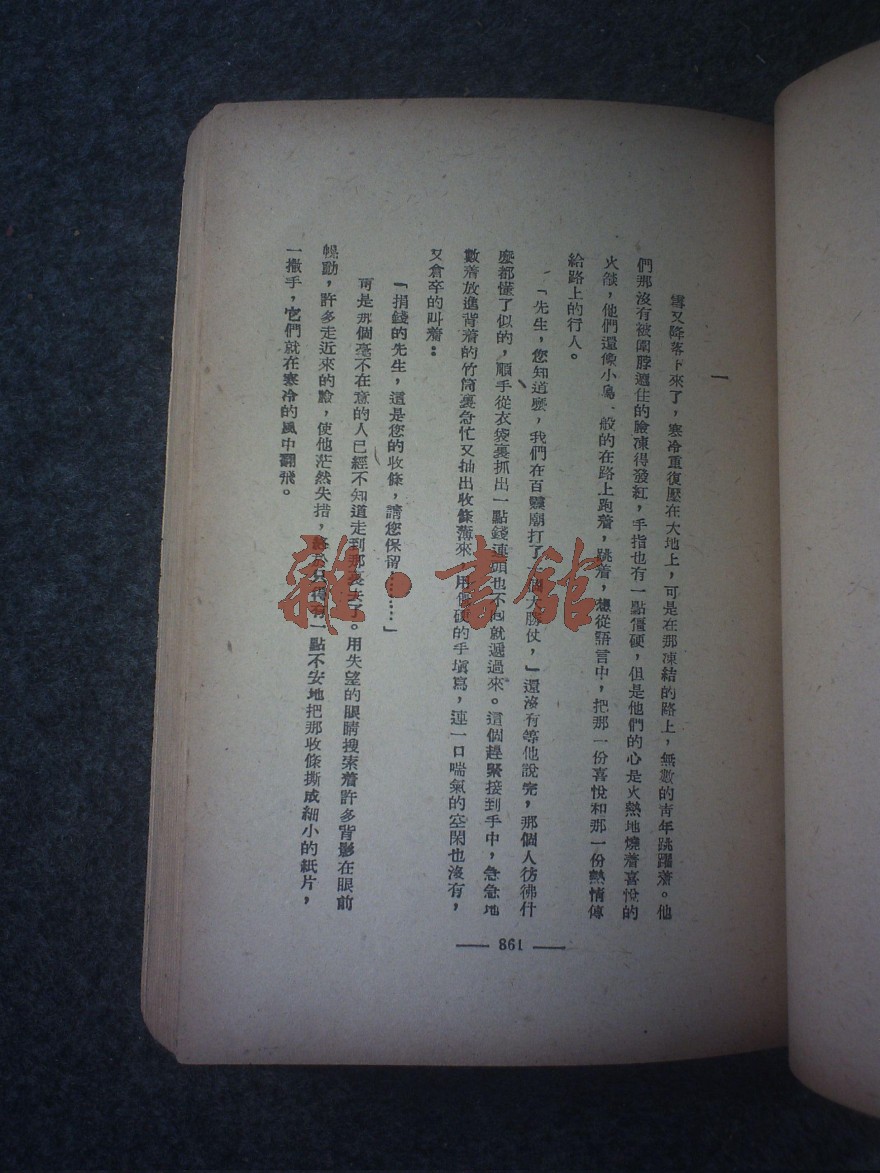 一
雪又降落下來了，寒冷重復壓在大地上，可是在那凍結的路上，無數的靑年跳躍着。他
們那沒有被圍脖遮住的臉凍得發紅，手指也有一點僵硬，但是他們的心是火熱地燒着喜悅的
火燄，他們還像小鳥一般的在路上跑着，跳着，想從語言中，把那一份喜悅和那一份熱情傳
給路上的行人。
「先生，您知道麼，我們在百靈廟打了一個大勝仗，」還沒有等他說完，那個人彷彿什
麼都懂了似的，順手從衣袋裏抓出一點錢連頭也不回就遞過來。這個趕緊接到手中，急急地
數着放進背着的竹筒裏急忙又抽出收條薄來，用僵硬的手塡寫，連一口喘氣的空閑也沒有，
又倉卒的叫着：
「捐錢的先生，這是您的收條，請您保留………」
可是那個毫不在意的人已經不知道走到那裏去了。用失望的眼睛搜索着許多背影在眼前
幌動，許多走近來的臉，使他茫然失措，終於只得有一點不安地把那收條撕成細小的紙片，
一撒手，它們就在寒冷的風中翻飛。
— 861 —
雜·書館